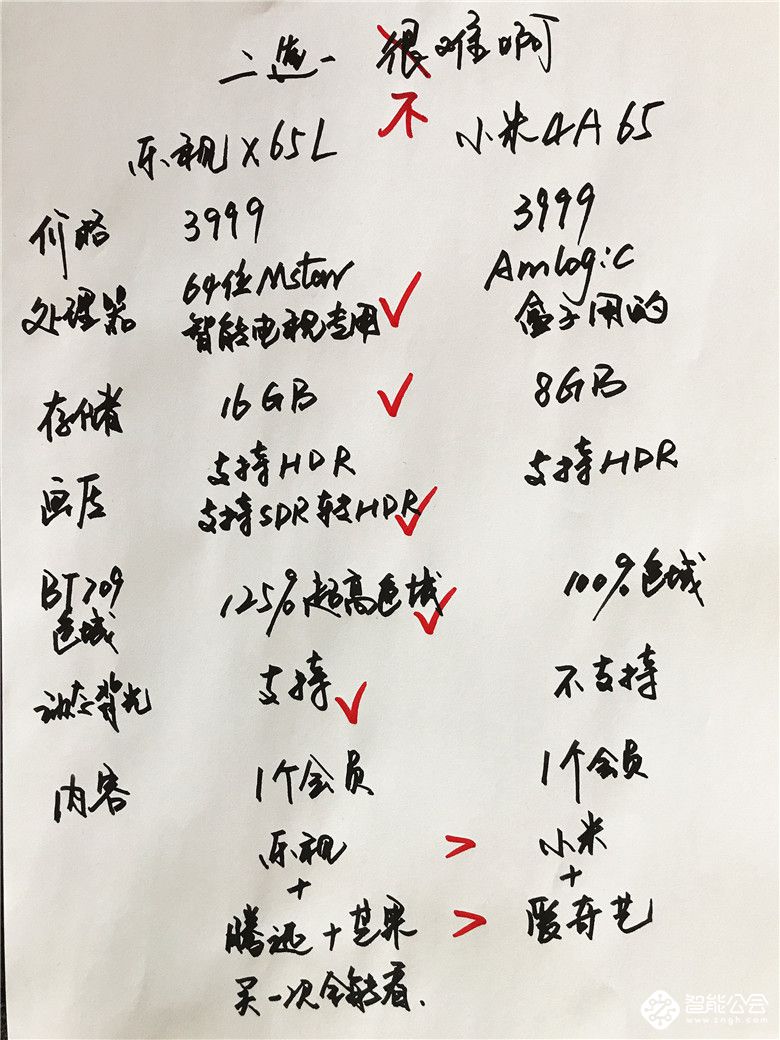 二选一 很难啊
不
乐视X65L 小米4A65
价格 3999 3999
处理器 64位Mstar Amlogic
智能电视专用 盒子用的
存储 16GB 8GB
画质 支持HDR 支持HDR
支持SDR转HDR
BT709 125%超高色域 100%色域
色域
动态背光 支持 不支持
内容 1个会员 1个会员
乐视 > 小米
+ +
腾迅+芒果 > 爱奇艺
买一次全能看.
智能公会
www.zngh.com